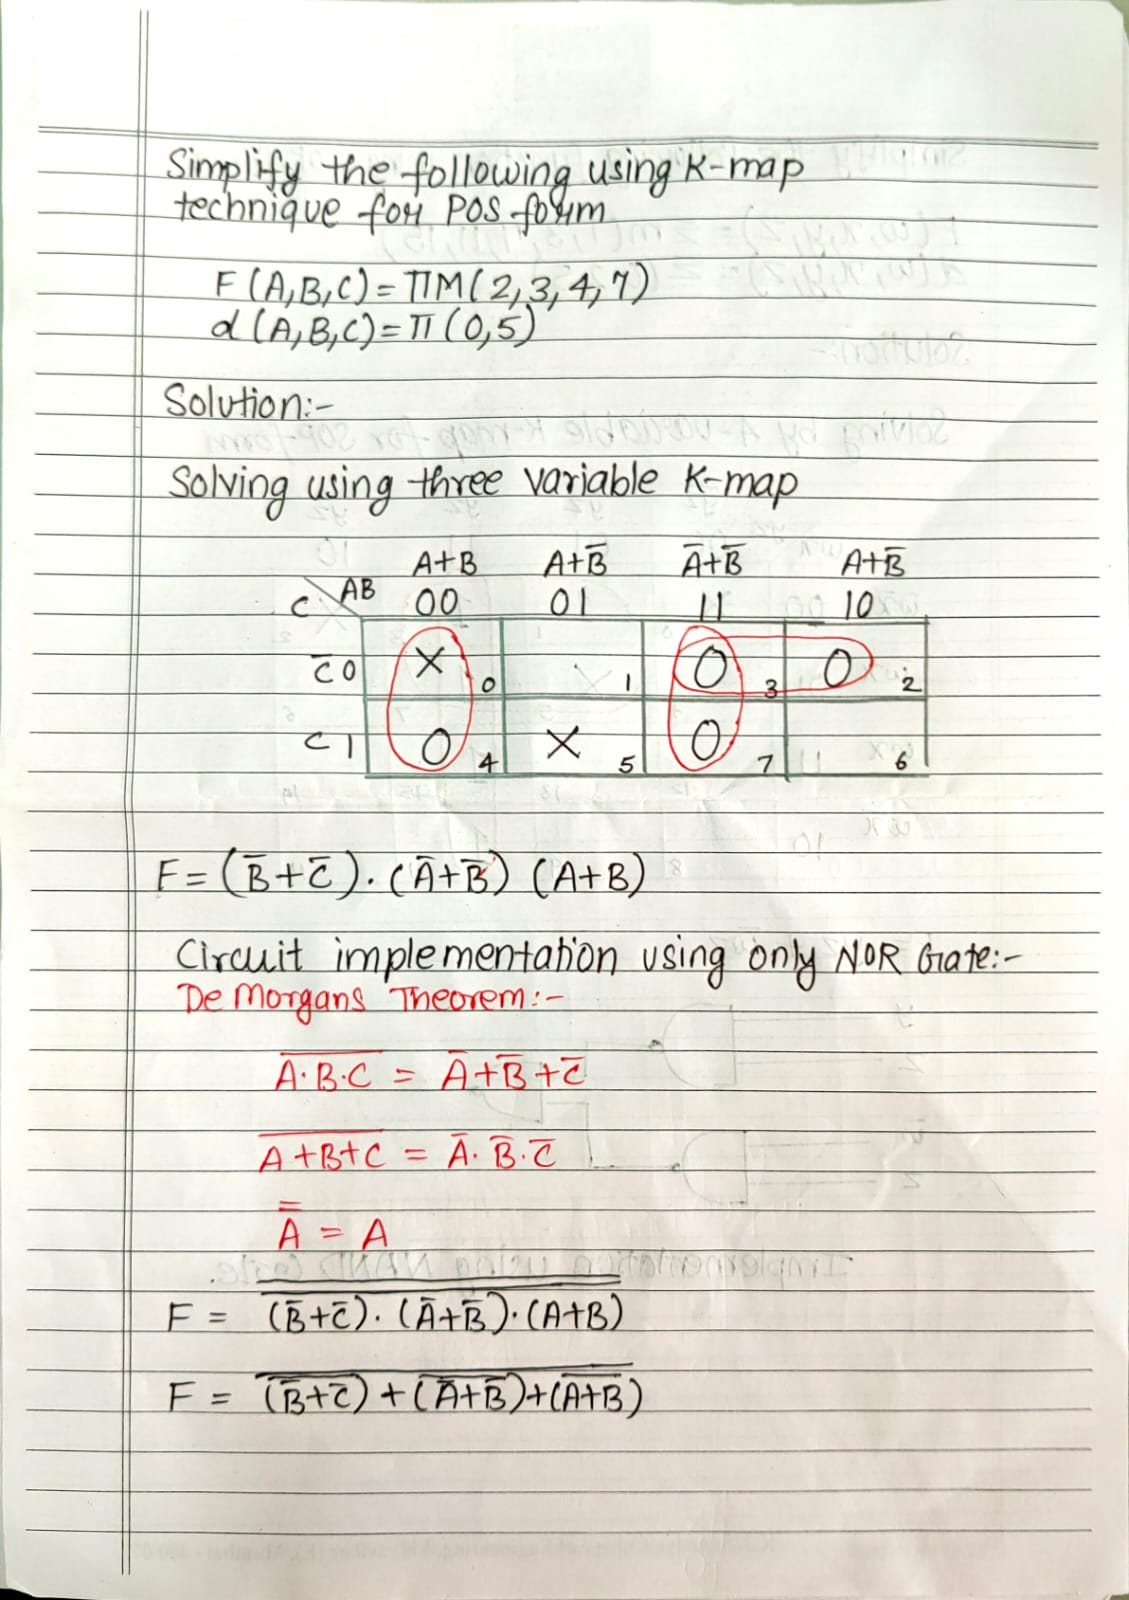 Simplify the following using K-map
technique for POS form
F (A,B,C) = ΠM( 2, 3, 4, 7)
d (A,B,C) = Π (0,5)
Solution:-
Solving using three variable K-map
A+B A+B̅ A̅+B̅ A+B̅
C AB 00 01 11 10
C̅ 0 X 0 1 0 3 0 2
C 1 0 4 X 5 0 7 6
F = (B̅+C̅). (A̅+B̅) (A+B)
Circuit implementation using only NOR Gate:-
De Morgans Theorem:-
\overline{A·B·C} = A̅+B̅+C̅
\overline{A+B+C} = A̅. B̅. C̅
\overline{\overline{A}} = A
F = \overline{\overline{(B̅+C̅). (A̅+B̅). (A+B)}}
F = \overline{\overline{(B̅+C̅)} + \overline{(A̅+B̅)} + \overline{(A+B)}}